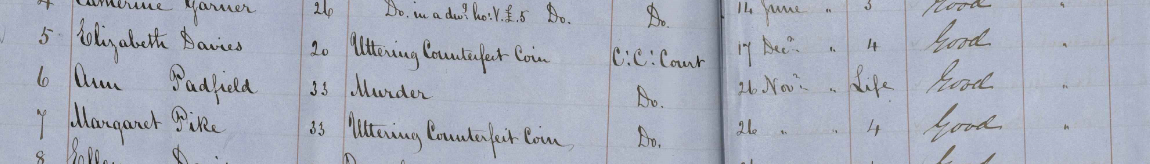 4 Catherine Garner 26 Do. in a dwg ho: V. £.5 Do. Do. 14 June " 3 Good
5 Elizabeth Davies 20 Uttering Counterfeit Coin C:C:Court 17 Decr " 4 Good "
6 Ann Padfield 33 Murder Do. 26 Novr " Life Good "
7 Margaret Pike 33 Uttering Counterfeit Coin Do. 26 " " 4 Good "
8 Ellen